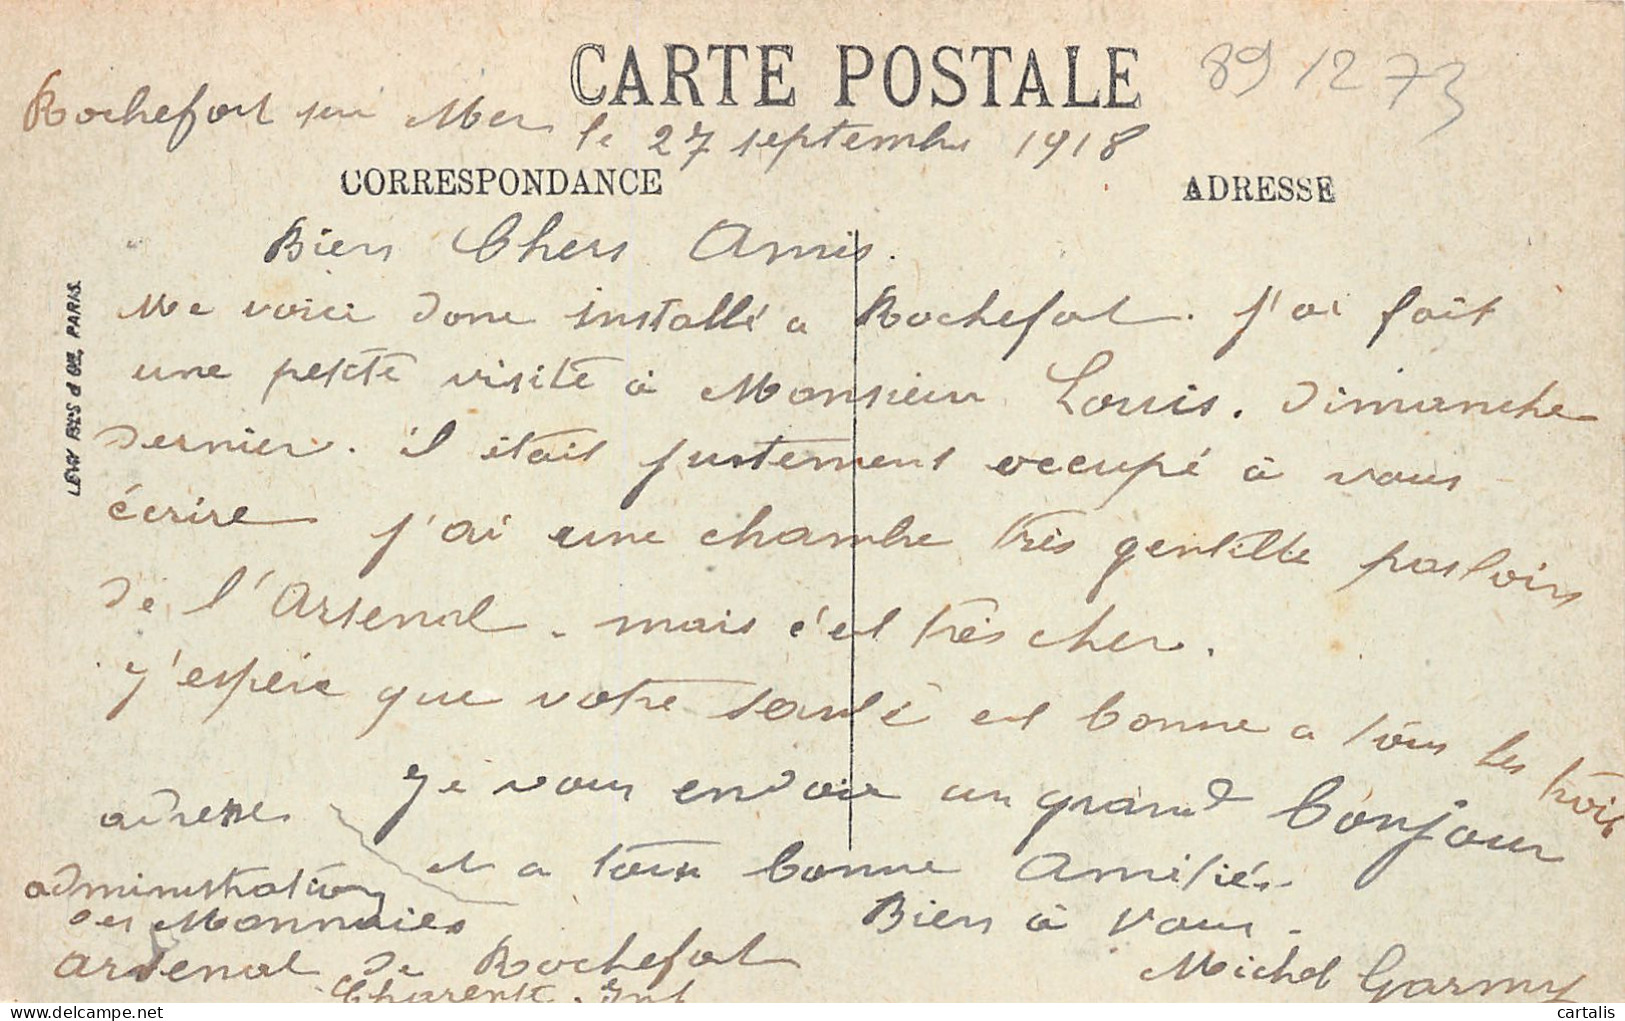 CARTE POSTALE
89 1273
Rochefort sur Mer le 27 septembre 1918
CORRESPONDANCE
ADRESSE
Bien Chers Amis.
Me voici donc installé a Rochefort. J'ai fait
une petite visite à Monsieur Louis. dimanche
dernier. il était justement occupé à vous
écrire j'ai une chambre très gentille pas loin
de l'Arsenal. mais c'est très cher.
J'espère que votre santé est bonne a tous les trois
Je vous envoie un grand bonjour
et a tous bonne Amitiés.
Bien à vous.
Michel Garmy
adresse
administration
des Monnaies
arsenal de Rochefort
Charente. Inf
LEVY FILS & CIE, PARIS.
cartalis